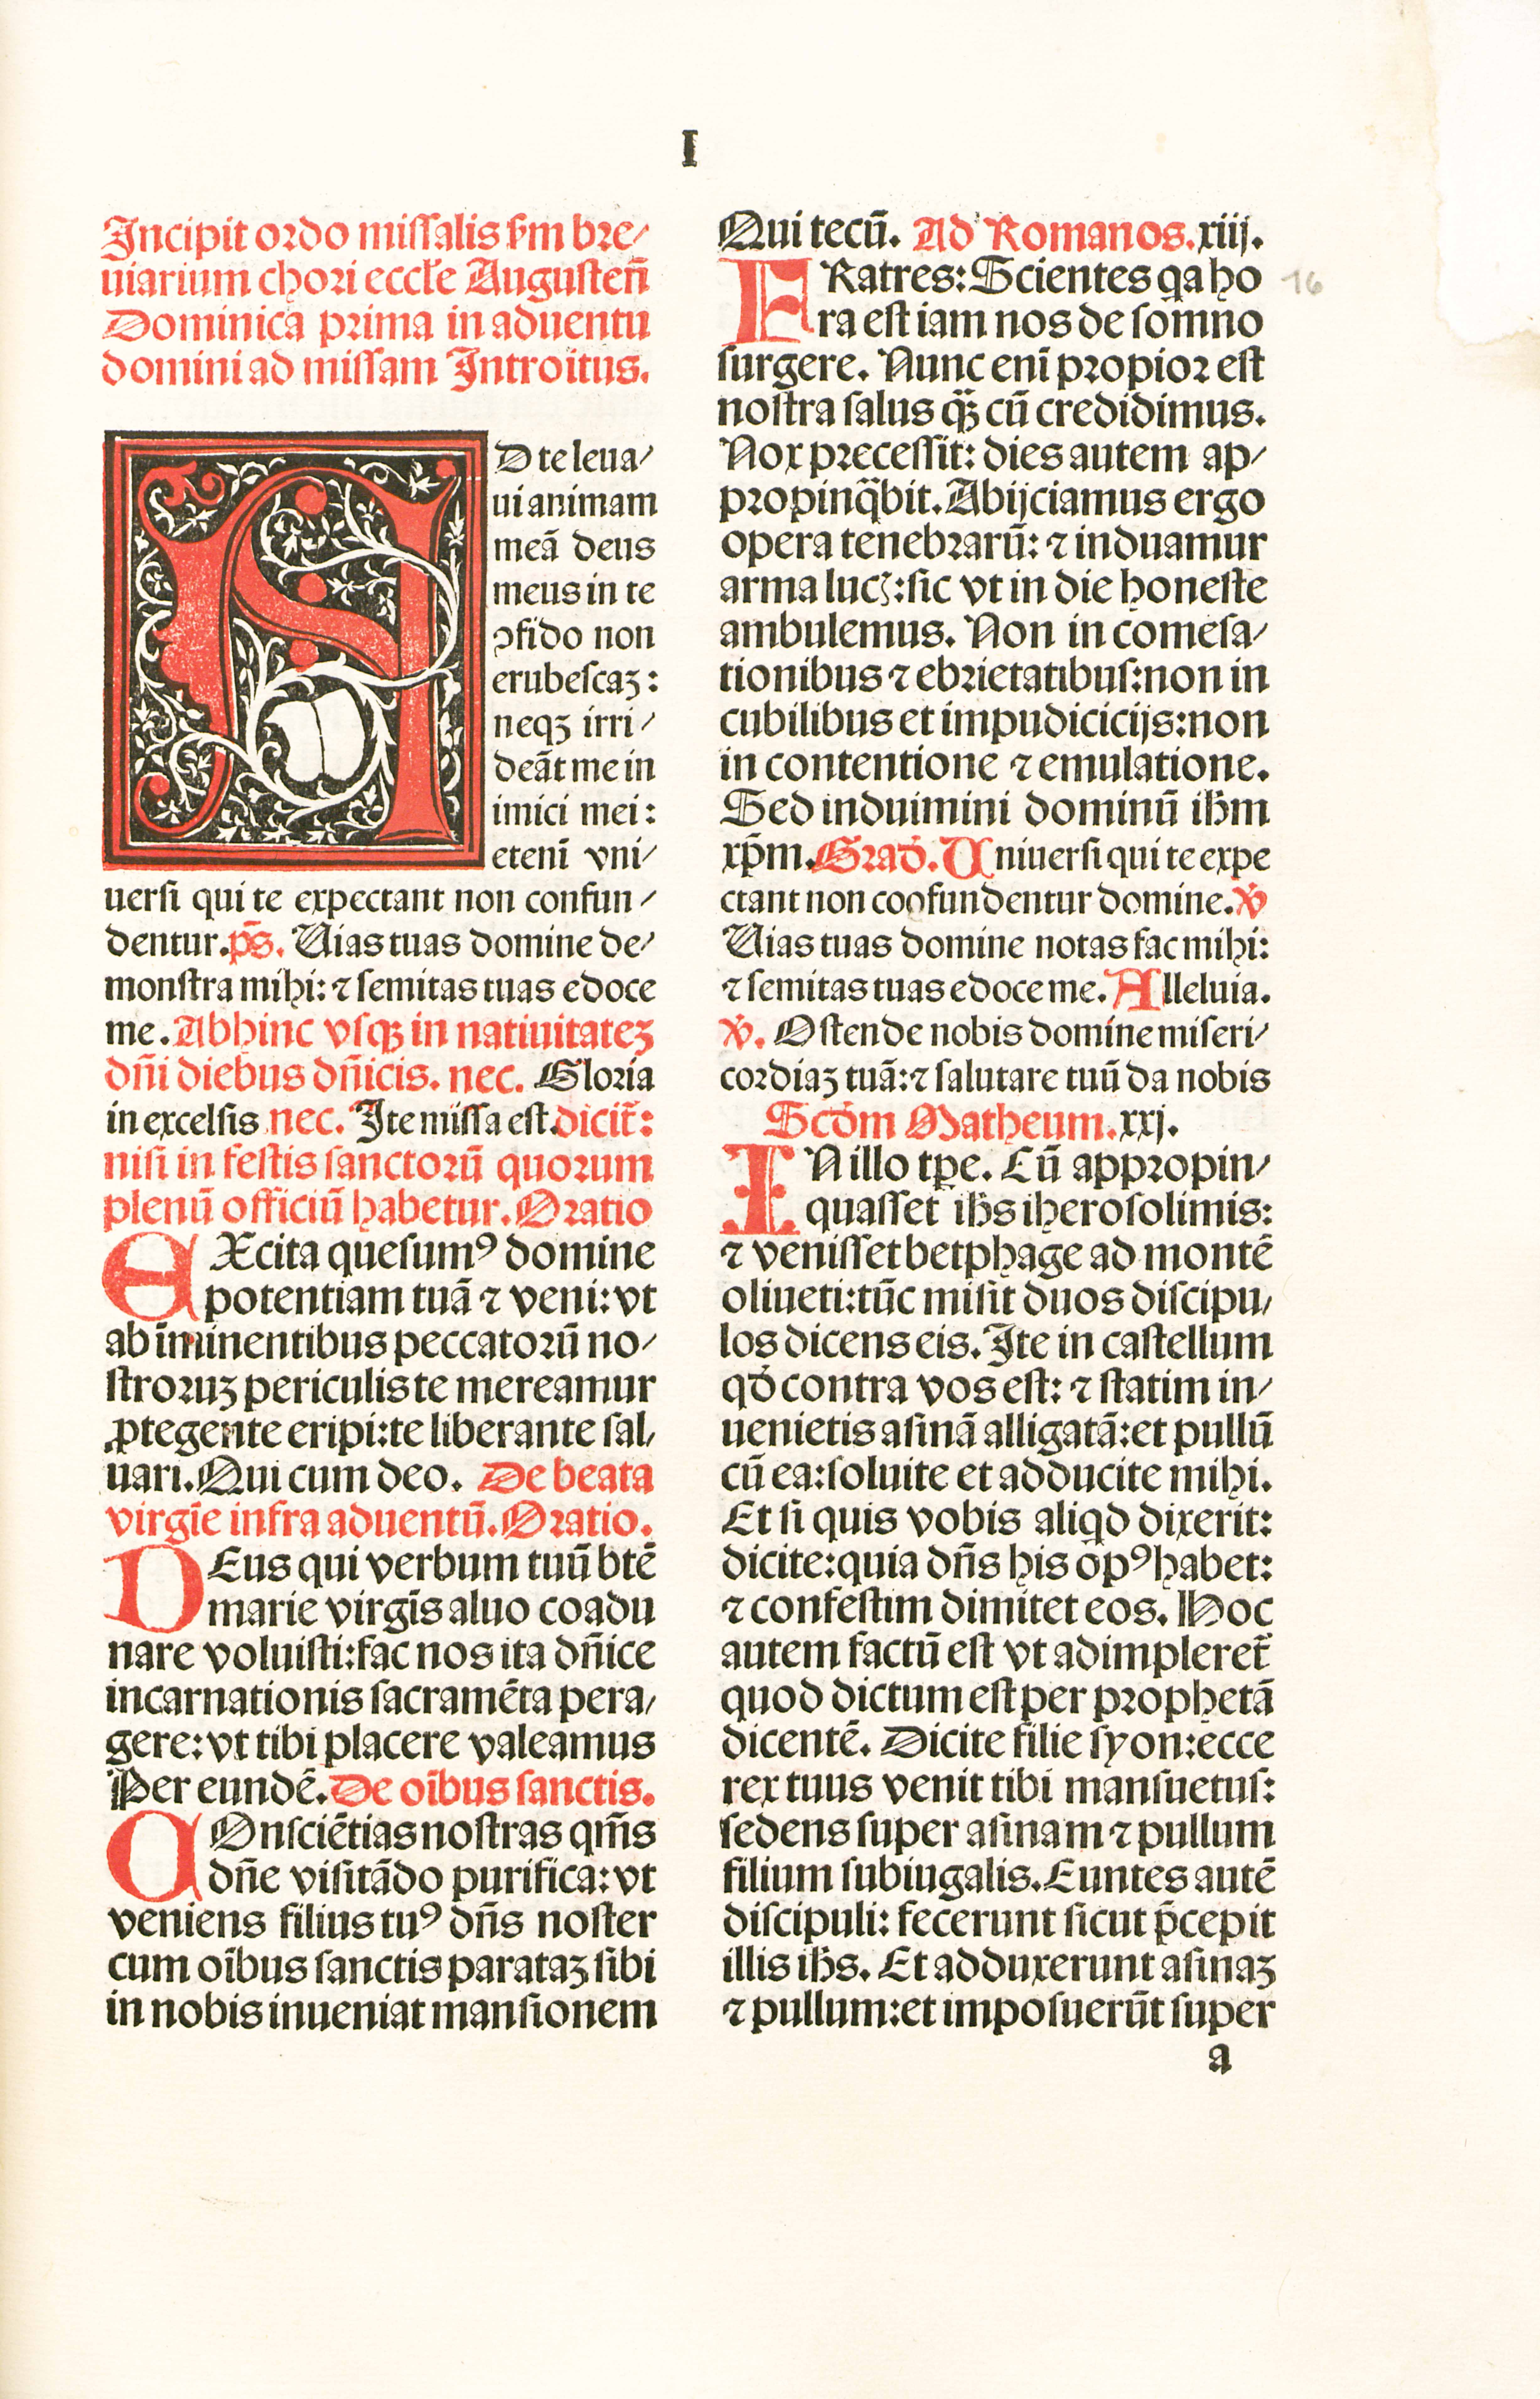 I
Incipit ordo missalis sm̄ bre⸗
uiarium chori eccłe Augusten̄
Dominica prima in aduentu
domini ad missam Introitus.
AD te leua⸗
ui animam
meā deus
meus in te
ꝯfido non
erubescaꝫ:
neqꝫ irri⸗
deāt me in
imici mei:
etenī vni⸗
uersi qui te expectant non confun⸗
dentur. ps̄. Uias tuas domine de⸗
monstra mihi: ⁊ semitas tuas edoce
me. Abhinc vsqꝫ in natiuitateꝫ
dn̄i diebus dn̄icis. nec. Gloria
in excelsis nec. Ite missa est. dicit̄:
nisi in festis sanctorū quorum
plenū officiū habetur. Oratio
EXcita quesumꝰ domine
potentiam tuā ⁊ veni: vt
ab īminentibus peccatorū no⸗
stroruꝫ periculis te mereamur
ꝓtegente eripi: te liberante sal⸗
uari. Qui cum deo. De beata
virgīe infra aduentū. Oratio.
DEus qui verbum tuū btē
marie virgīs aluo coadu
nare voluisti: fac nos ita dn̄ice
incarnationis sacramēta pera⸗
gere: vt tibi placere valeamus
Per eundē. De oībus sanctis.
COnsciētias nostras qm̄s
dn̄e visitādo purifica: vt
veniens filius tuꝰ dn̄s noster
cum oībus sanctis parataꝫ sibi
in nobis inueniat mansionem
Qui tecū. Ad Romanos. xiij.
FRatres: Scientes qa ho
ra est iam nos de somno
surgere. Nunc enī propior est
nostra salus qꝫ̄ cū credidimus.
Nox precessit: dies autem ap⸗
propinq̄bit. Abijciamus ergo
opera tenebrarū: ⁊ induamur
arma lucꝭ: sic vt in die honeste
ambulemus. Non in comesa⸗
tionibus ⁊ ebrietatibus: non in
cubilibus et impudicicijs: non
in contentione ⁊ emulatione.
Sed induimini dominū ih̄m
xp̄m. Grad̄. Uniuersi qui te expe
ctant non coofundentur domine. ℣
Uias tuas domine notas fac mihi:
⁊ semitas tuas edoce me. Alleluia.
℣. Ostende nobis domine miseri⸗
cordiaꝫ tuā: ⁊ salutare tuū da nobis
Scd̄m Matheum. xxj.
IN illo tp̄e. Cū appropin⸗
quasset ih̄s iherosolimis:
⁊ venisset betphage ad montē
oliueti: tūc misit duos discipu⸗
los dicens eis. Ite in castellum
qd̄ contra vos est: ⁊ statim in⸗
uenietis asinā alligatā: et pullū
cū ea: soluite et adducite mihi.
Et si quis vobis aliqd dixerit:
dicite: quia dn̄s his op̄ꝰ habet:
⁊ confestim dimitet eos. Hoc
autem factū est vt adimpleret̄
quod dictum est per prophetā
dicentē. Dicite filie syon: ecce
rex tuus venit tibi mansuetus:
sedens super asinam ⁊ pullum
filium subiugalis. Euntes autē
discipuli: fecerunt sicut p̄cepit
illis ih̄s. Et adduxerunt asinaꝫ
⁊ pullum: et imposuerūt super
a
16